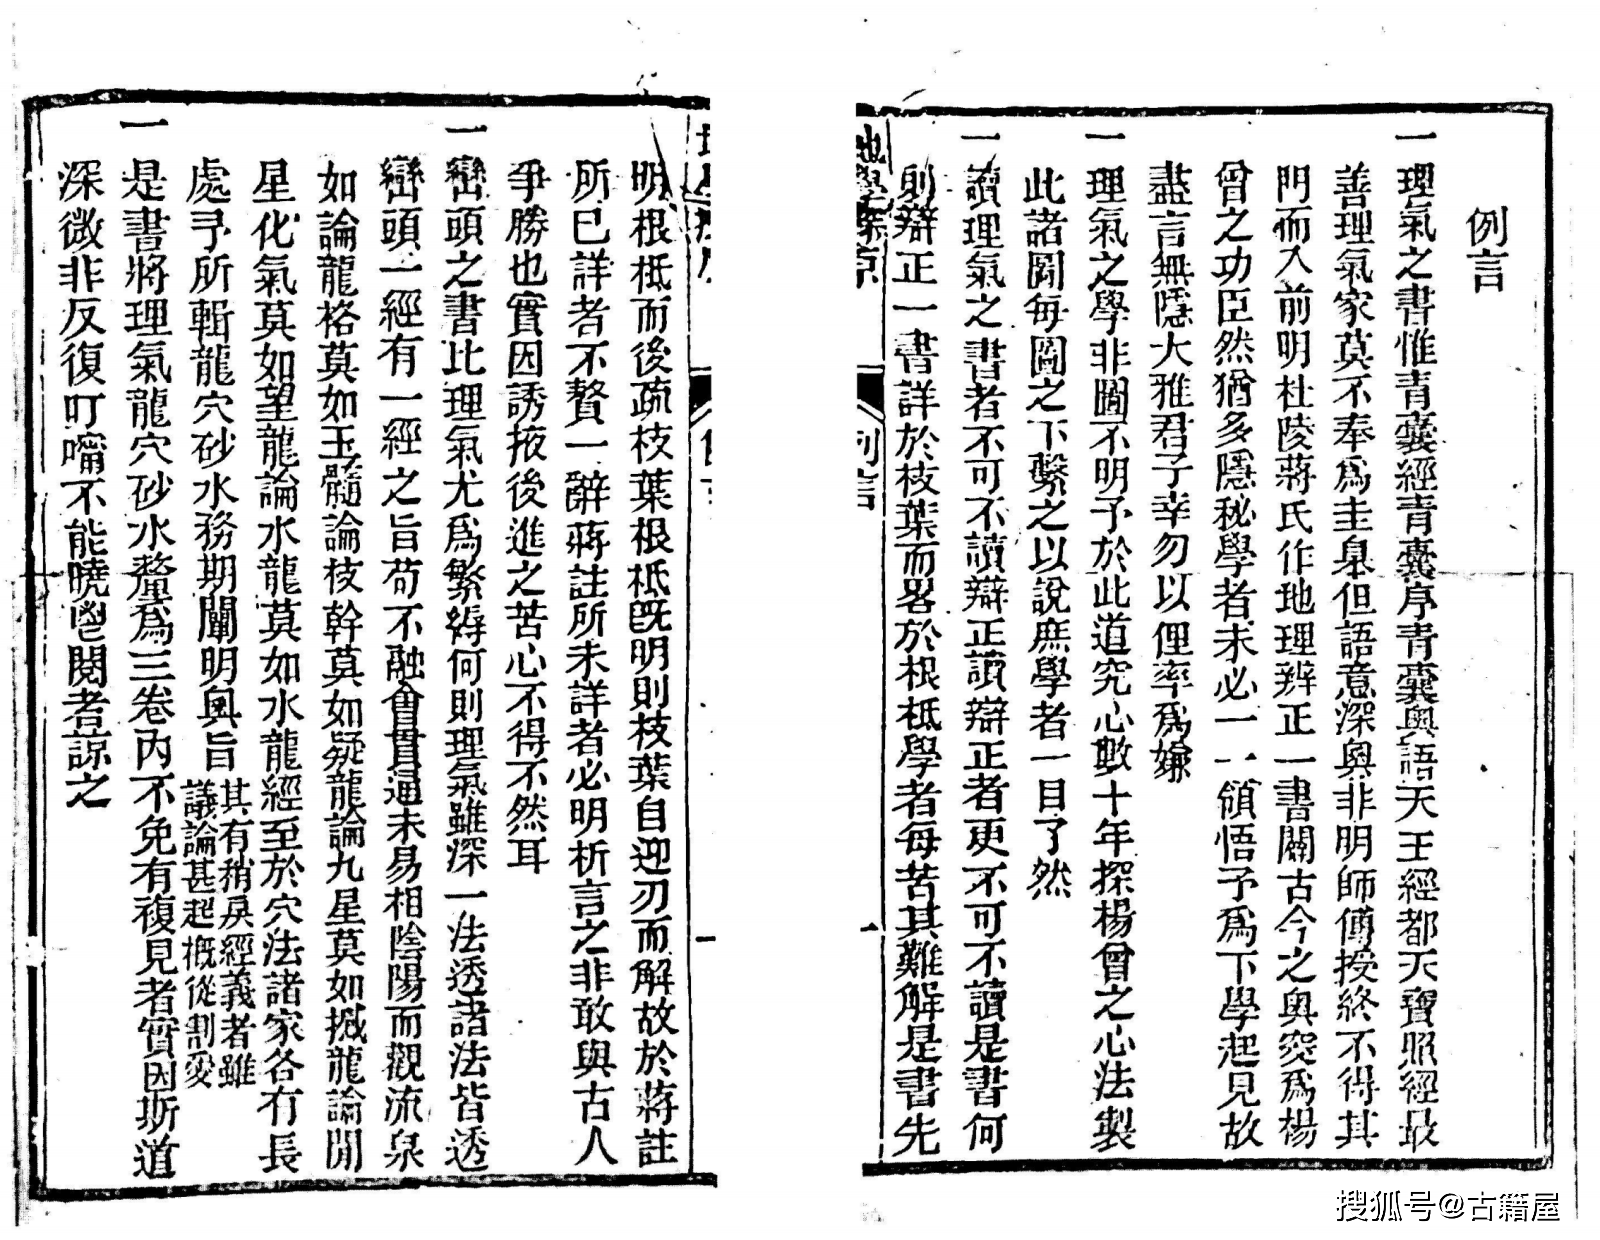 例言
一理氣之書惟青囊經青囊序青囊奧語天王經都天寶照經最
善理氣家莫不奉爲圭臬但語意深奧非明師傳授終不得其
門而入前明杜陵蔣氏作地理辨正一書闢古今之奧突爲楊
曾之功臣然猶多隱秘學者未必一一領悟予爲下學起見故
盡言無隱大雅君子幸勿以俚率爲嫌
一理氣之學非圖不明予於此道究心數十年探楊曾之心法製
此諸圖每圖之下繫之以說庶學者一目了然
一讀理氣之書者不可不讀辯正讀辯正者更不可不讀是書何
則辯正一書詳於枝葉而畧於根柢學者每苦其難解是書先
地學探原
例言
一
明根柢而後疏枝葉根柢既明則枝葉自迎刃而解故於蔣註
所已詳者不贅一辭蔣註所未詳者必明析言之非敢與古人
爭勝也實因誘掖後進之苦心不得不然耳
一巒頭之書比理氣尤爲繁縟何則理氣雖深一法透諸法皆透
巒頭一經有一經之旨苟不融會貫通未易相陰陽而觀流泉
如論龍格莫如玉髓論枝幹莫如疑龍論九星莫如撼龍論閒
星化氣莫如望龍論水龍莫如水龍經至於穴法諸家各有長
處予所輯龍穴砂水務期闡明奧旨其有稍戾經義者雖
議論甚起概從割愛
一是書將理氣龍穴砂水釐爲三卷內不免有複見者實因斯道
深微非反復叮嚀不能曉鬯閱者諒之
搜狐号@古籍屋